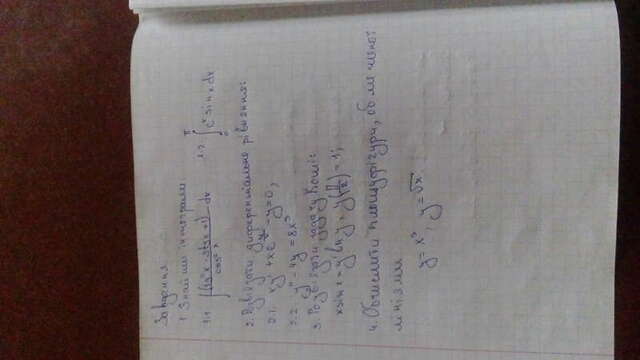 Завдання
1. Знайти інтеграли
1.1 ∫ (tg²x - 3tgx + 1)/cos²x dx 1.2 ∫ eˣ sin x dx
2. Розв'язати диференціальне рівняння:
2.1. xy' + xe^(y/x) - y = 0;
2.2 y'' - 4y = 8x³
3. Розв'язати задачу Коші:
4. Обчислити площу фігури, обмеженої
лініями
y = x³, y = √x.